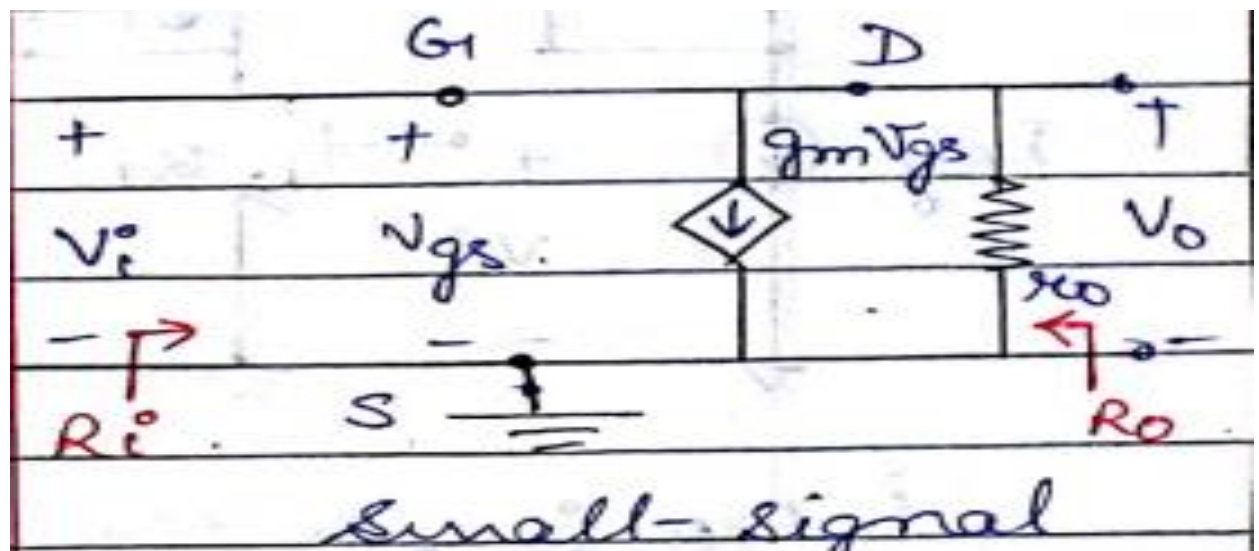 G D
+ + gmVgs +
Vi Vgs Vo
- - ro -
Ri S Ro
small-signal